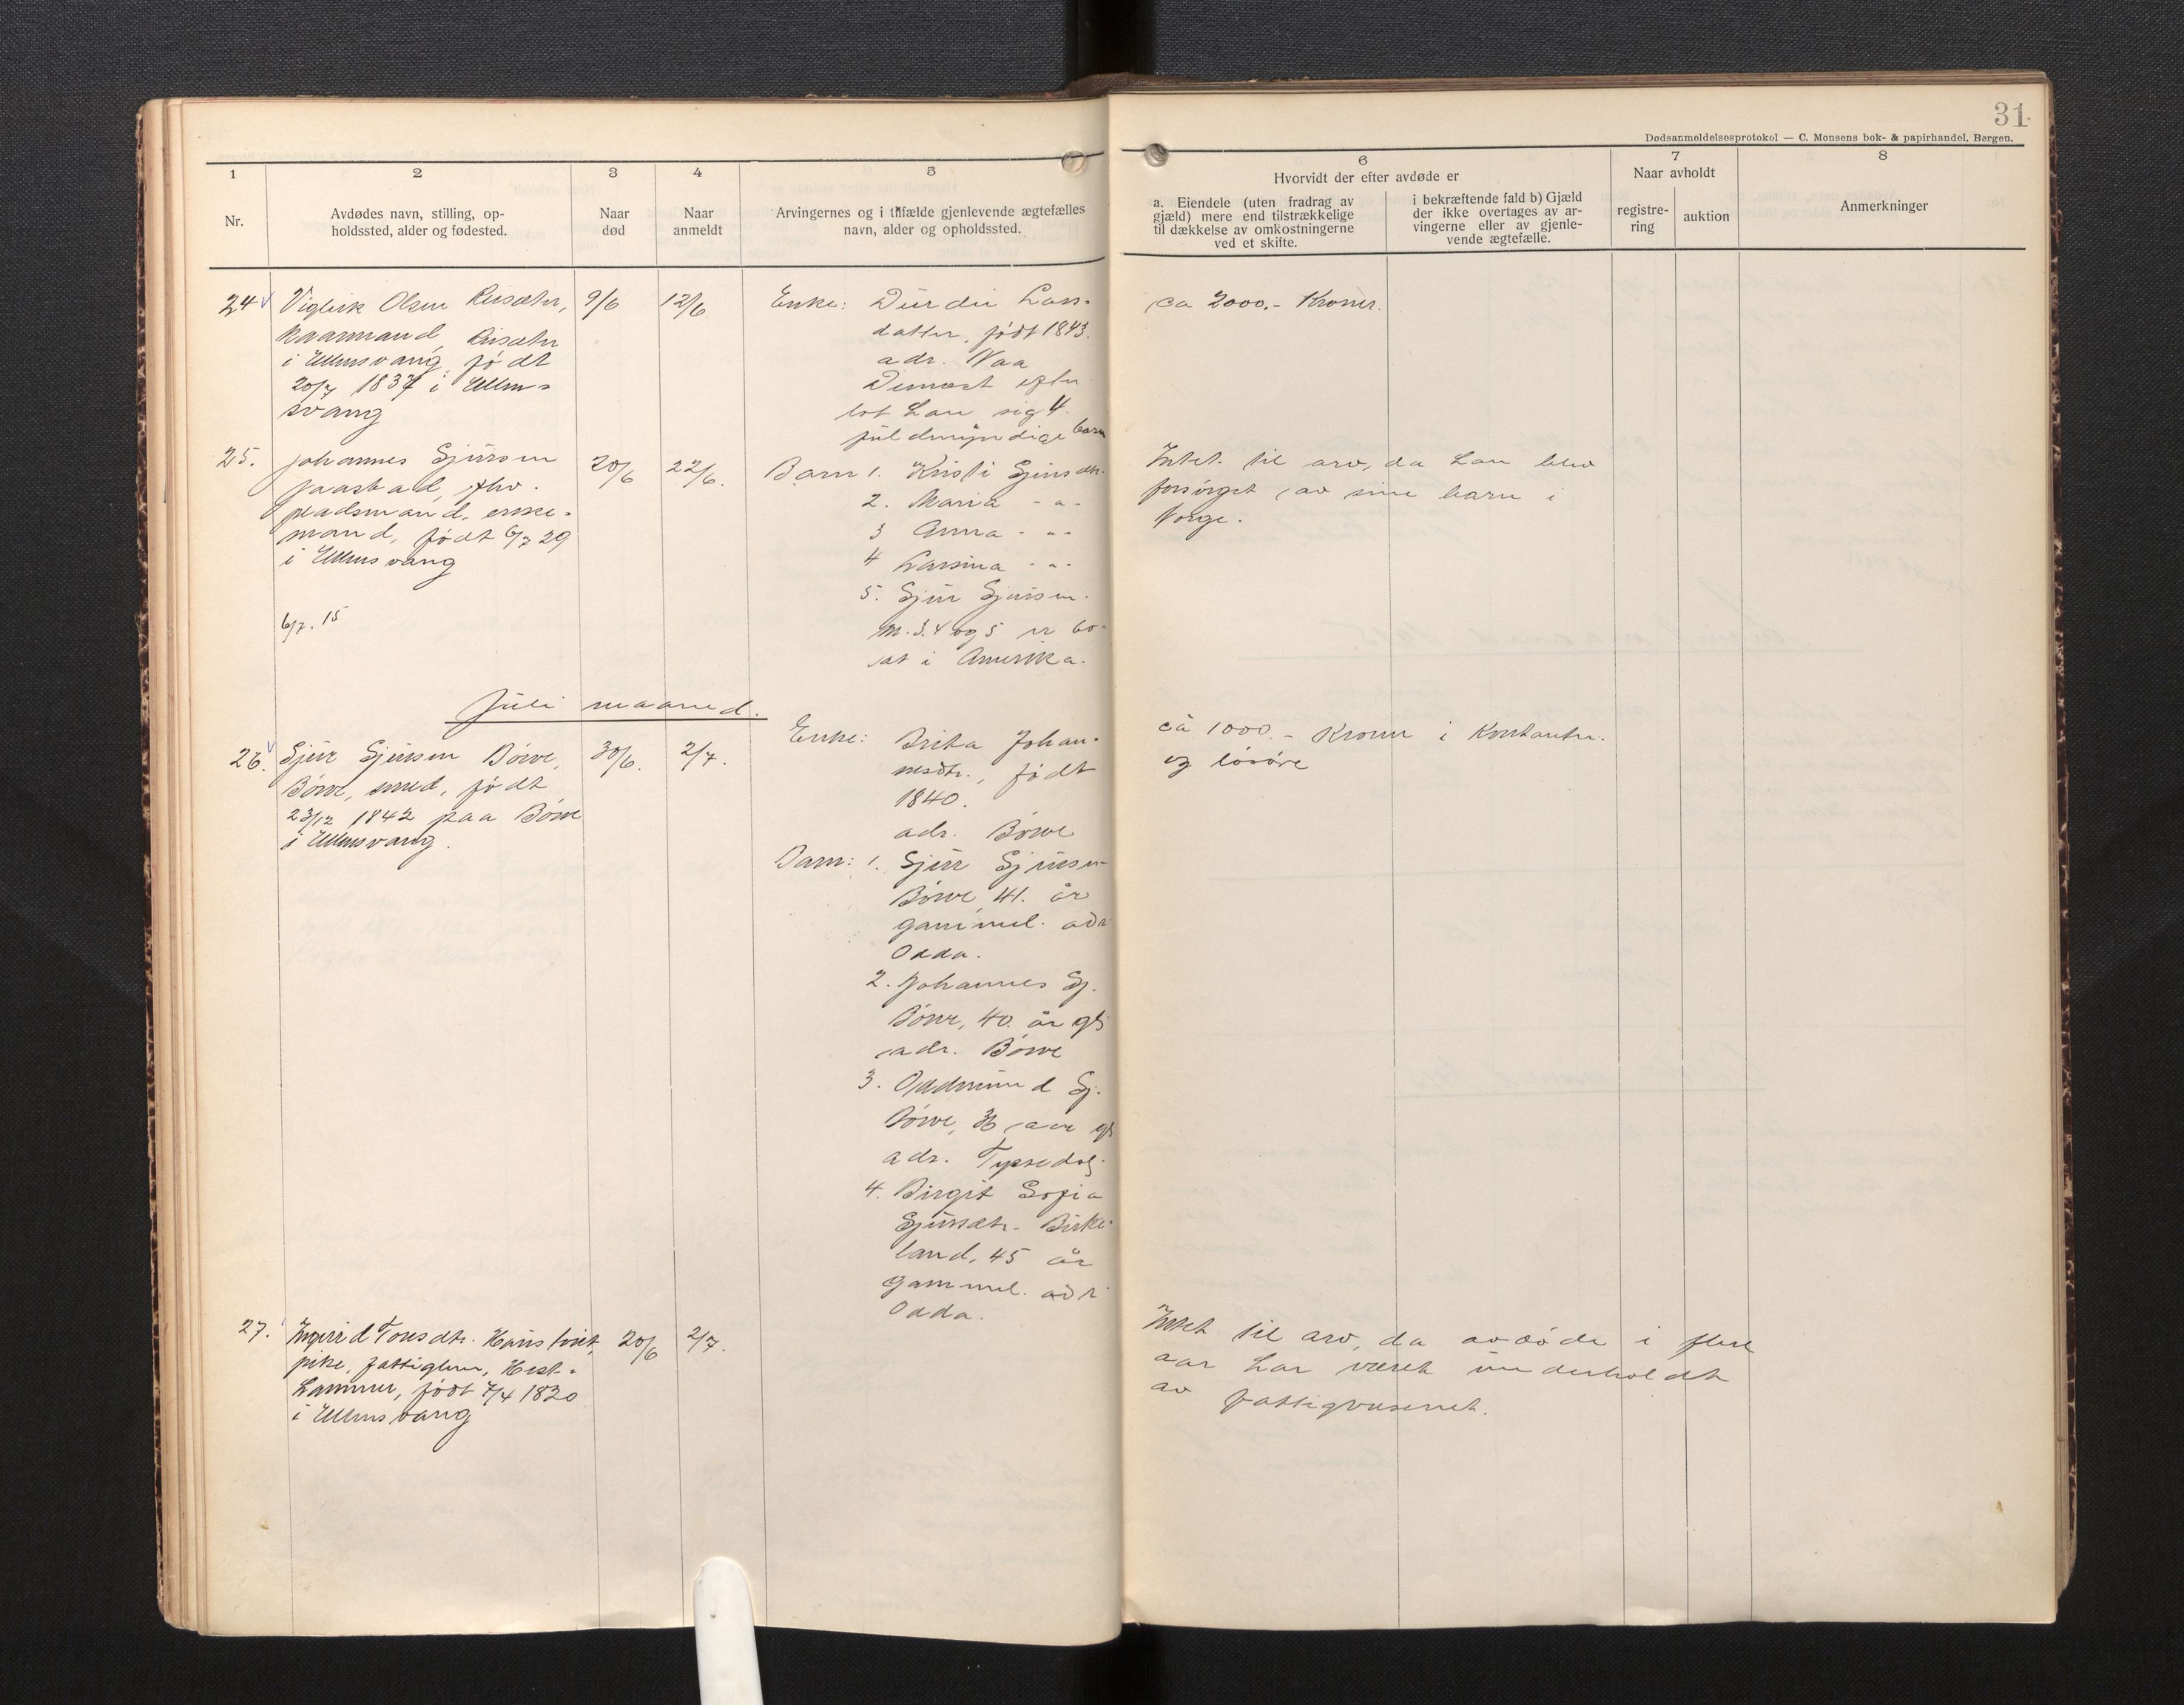 31
Dødsanmeldelsesprotokol — C. Monsens bok- & papirhandel, Bergen.
1
Nr.
2
Avdødes navn, stilling, op-
holdssted, alder og fødested.
3
Naar
død
4
Naar
anmeldt
5
Arvingernes og i tilfælde gjenlevende ægtefælles
navn, alder og opholdssted.
6
Hvorvidt der efter avdøde er
a. Eiendele (uten fradrag av
gjæld) mere end tilstrækkelige
til dækkelse av omkostningerne
ved et skifte.
i bekræftende fald b) Gjæld
der ikke overtages av ar-
vingerne eller av gjenle-
vende ægtefælle.
7
Naar avholdt
registre-
ring
auktion
8
Anmerkninger
24
Viglik Olsen Reisæter,
kaarmand, Reisæter
i Ullensvang, født
20/7 1837 i Ullen-
svang
9/6
12/6
Enke: Durdei Lars-
datter, født 1843.
adr. Naa
Dernæst efter
lot han sig 4
fuldmyndige barn
ca 2000.- Kroner.
25.
Johannes Sjursen
Jaastad, fhv.
pladsmand, enke-
mand, født 6/7 29
i Ullensvang
6/7. 15
20/6
22/6.
Barn 1. Kristi Sjursdtr.
2. Maria - " -
3 Anna - " -
4 Larsina - " -
5. Sjur Sjursen.
nr. 3. 4 og 5 er bo-
sat i Amerika.
Intet til arv, da han blev
forsørget av sine barn i
Norge.
Juli maaned.
26.
Sjur Sjursen Børve,
Børve, smed, født
23/12 1842 paa Børve
i Ullensvang.
30/6.
2/7.
Enke: Brita Johan-
nesdtr., født
1840.
adr. Børve
Barn: 1. Sjur Sjursen
Børve, 41. år
gammel. adr
Odda.
2. Johannes Sj.
Børve, 40. år gl
adr. Børve
3. Oddmund Sj.
Børve, 36 aar gl
adr. Tyssedal
4. Birgit Sofia
Sjursdtr. Birke-
land, 45 år
gammel. adr
Odda.
ca 1000.- Kroner i Kontanter.
og løsøre
27.
Ingerid Torsdtr. Haustveit,
pike, fattiglem, Hest-
hammer, født 7/4 1830
i Ullensvang
20/6
2/7.
Intet til arv, da avdøde i flere
aar har været underholdt
av fattigvæsenet.